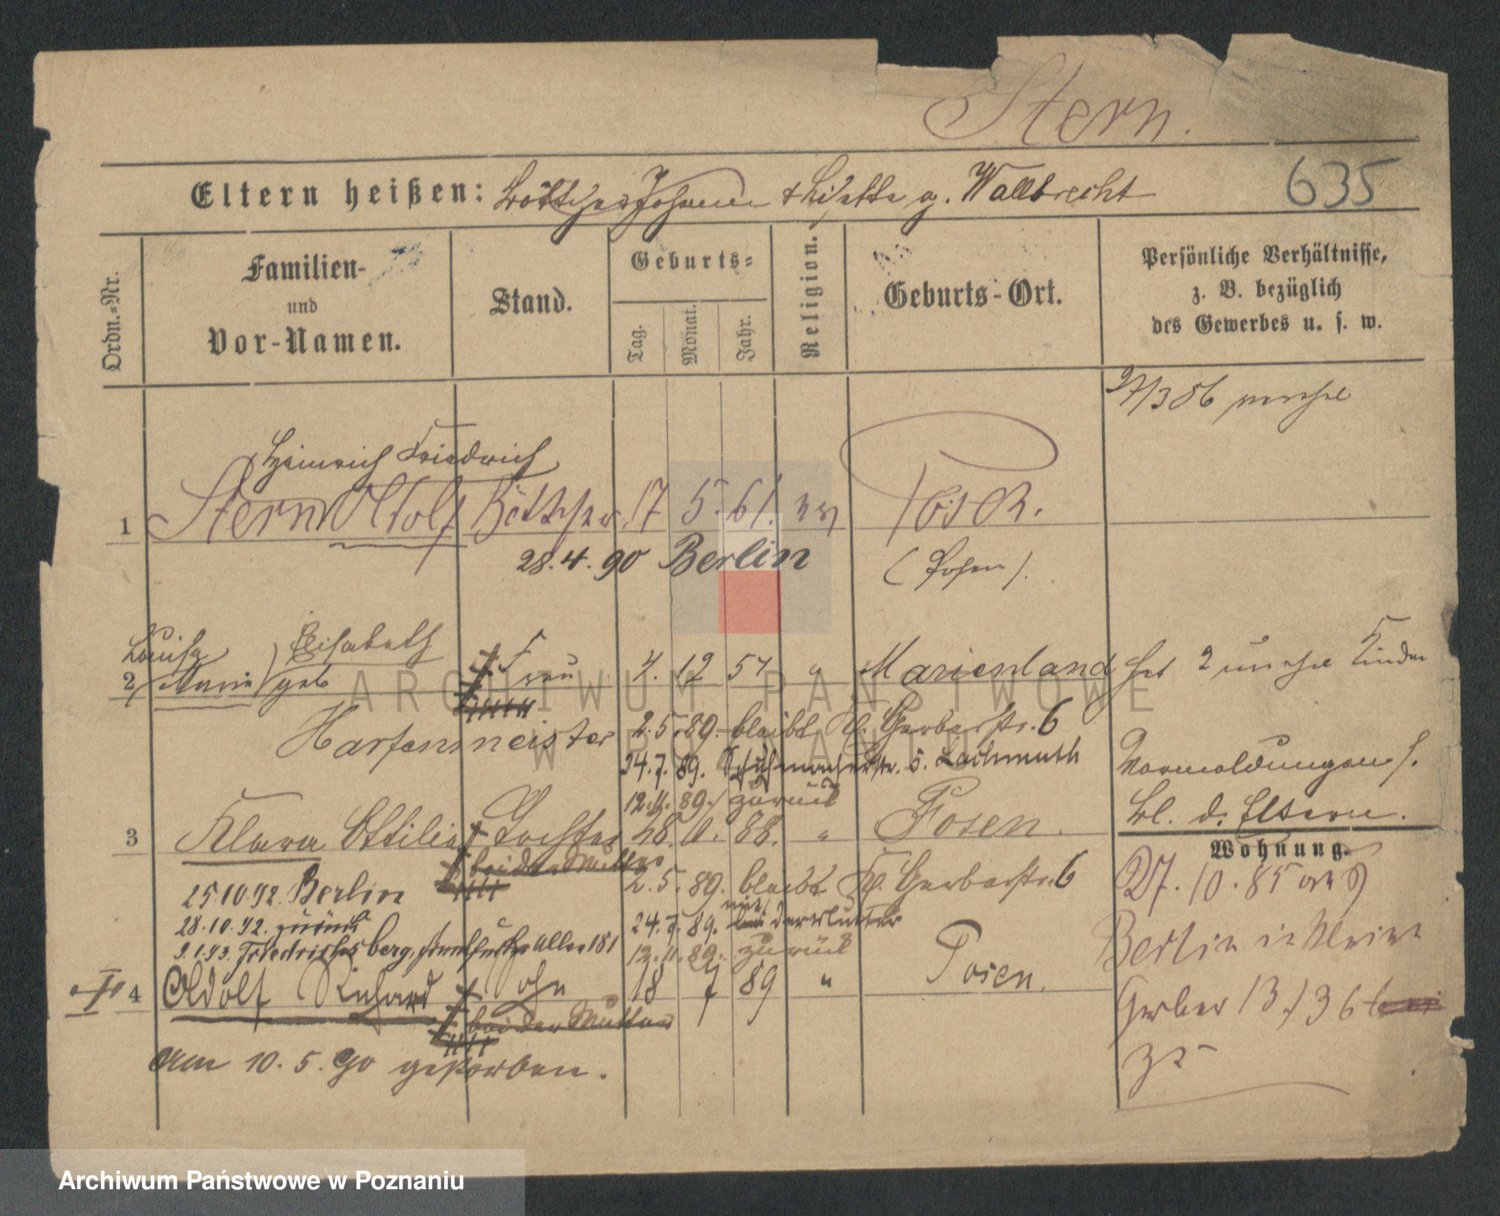 Stern.
635
Eltern heißen: Böttcher Johann & Lisette g. Wallbrecht
Ordn.-Nr.
Familien-
und
Vor-Namen.
Stand.
Geburts-
Tag.
Monat.
Jahr.
Religion.
Geburts-Ort.
Persönliche Verhältnisse,
z. B. bezüglich
des Gewerbes u. s. w.
27/3 86
Heinrich Friedrich
1 Stern Adolf Böttcher 17 5. 61. Posen.
28.4.90 Berlin
(Posen).
Luise Elisabeth
2 Marie geb Frau 4. 12 57 " Marienland hat 2 unehel Kinder
Hartenmeister 2.5.89. bleibt Kl. Gerberstr. 6
24.7.89. Schuhmacherstr. 5. Lachmuth
Vormeldungen s.
12.11.89. zurück
Bl. d. Eltern.
3 Klara Ottilie Tochter 28. 88. " Posen.
bei der Mutter
Wohnung.
25.10.92. Berlin
2.5.89. bleibt Kl. Gerberstr. 6
27.10.85
28.10.92. zurück
24.7.89. mit der Mutter
9.1.93. Friedrichsberg, Frankfurter Allee 181
12.11.89. zurück
Berlin
4 Adolf Richard Sohn 18 7 89 " Posen.
Gerber 13./36
bei der Mutter
Am 10. 5. 90 gestorben.
ARCHIWUM PAŃSTWOWE
W POZNANIU
Archiwum Państwowe w Poznaniu